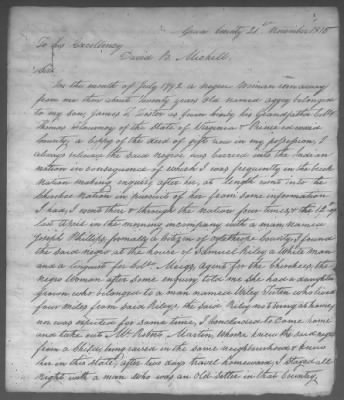 Green County 21st November 1815
To his Excellency
David B. Mitchell.
Sir
In the month of July 1792 a negro Woman runaway
from me then about Twenty years old named aggy belonged
to my son James T Easter as given by his Grandfather
Thomas Flournoy of the State of Virginia & Prince edward
County a Copy of the deed of gift now in my possession, I
always believed the said negroe was Carried into the Indian
nation in consequence of which I was frequently in the
Nation making enquiry after her, at length went into the
nation in pursuit of her from some information
I had, I went there & through the Nation four times, the
last April in the morning in company with a man named
Joseph Phillips, formally a Citizen of oglethorpe County, I found
the said negro at the house of Samuel Riley a White man
and a linguist for Meigs agent for the Cherokees, the
negro Woman after some enquiry told me She had a daughter
grown who belonged to a man named who lived
four miles from said Rileys, the said Riley not being at home
nor was expected for some time, I concluded to Come home
and take out Mr. Robt. Martin, Whom knew the said negro
from a Child, being raised in the same neighbourhood & knew
her in this State, after two days travel homeward, I stayed all
night with a man who was an old Settler in that Country,